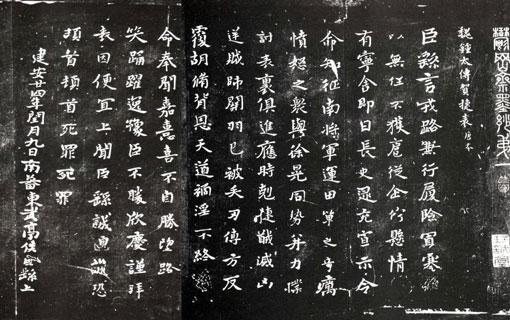 鬱岡齋墨妙弟
魏鍾太傅賀捷表 唐本
臣繇言戎路兼行履險冒寒臣
以無任不獲扈從企佇懸情無
有寧舍即日長史逯充宣示令
命知征南將軍運田單之奇厲
憤怒之衆與徐晃同勢并力撲
討表裏俱進應時剋捷馘滅凶
逆賊帥關羽已被矢刃傅方反
覆胡脩背恩天道禍淫不終厥
命奉聞嘉憙喜不自勝望路載
笑踊躍逸豫臣不勝欣慶謹拜
表因便宜上聞臣繇誠惶誠恐
頓首頓首死罪死罪
建安廿四年閏月九日南蕃東武亭侯臣繇上